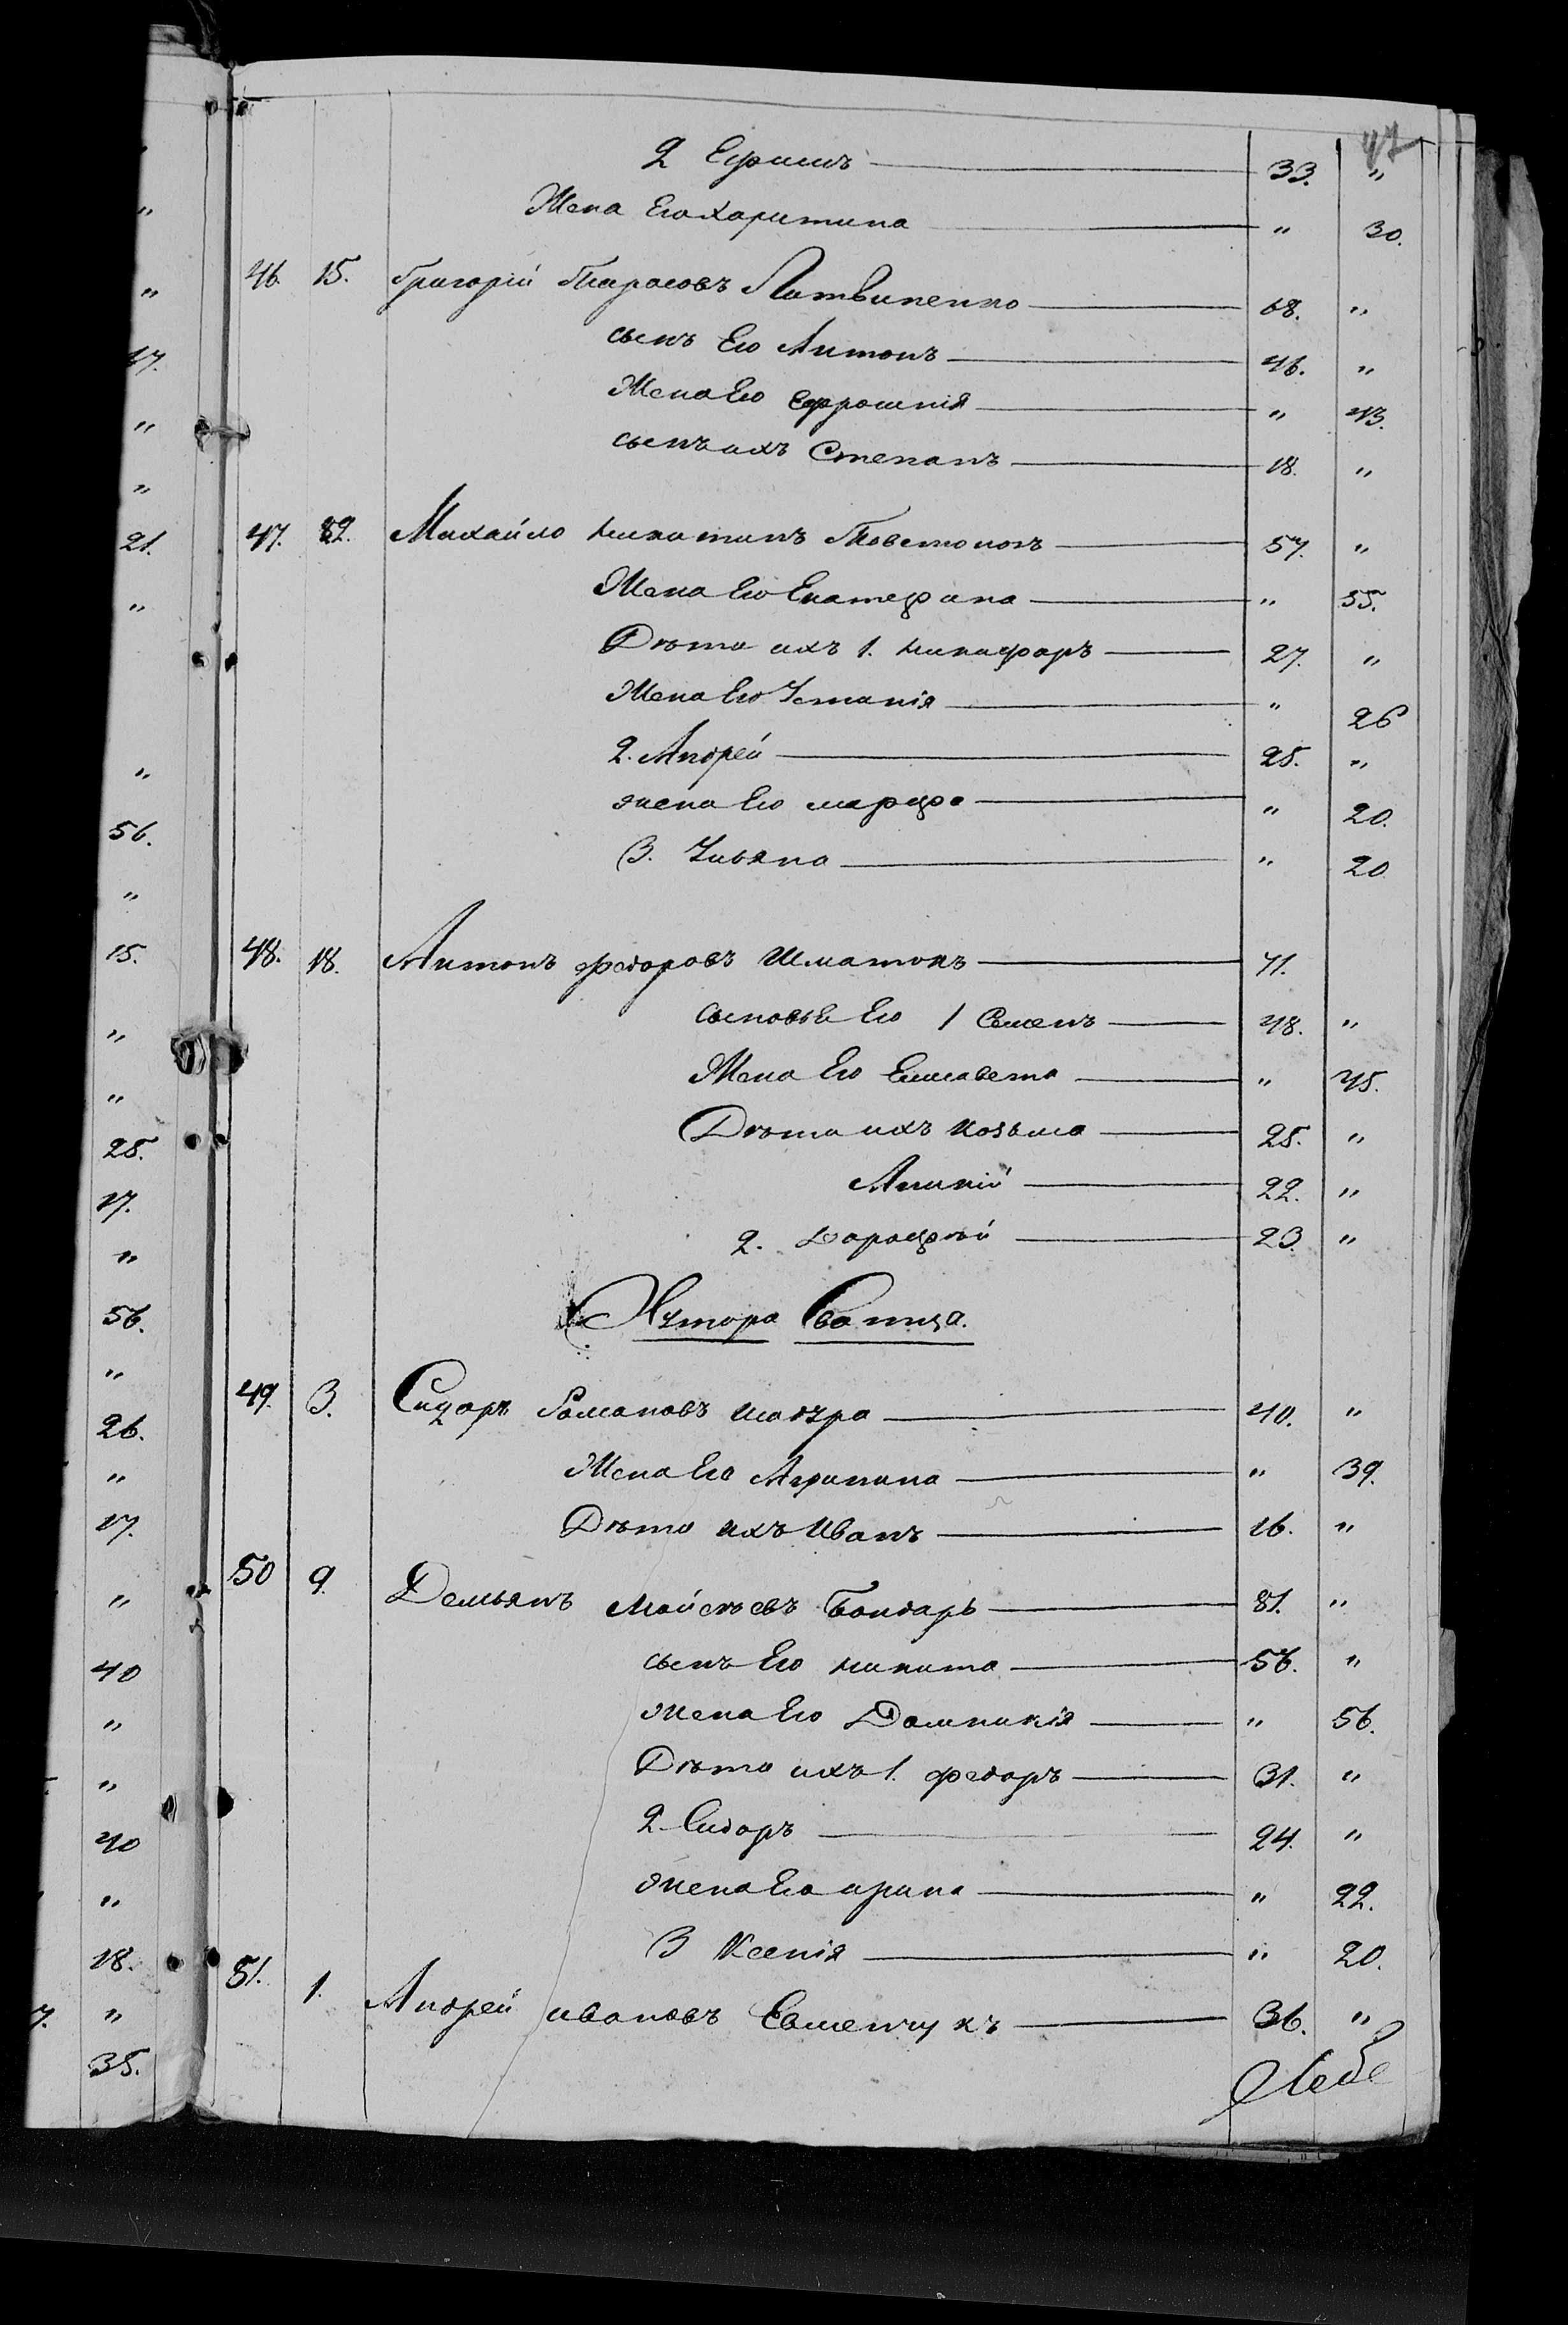 47
2 Ефимъ — 33. "
Жена Его Харитина — " 30.
46. 15. Григорій Тарасовъ Литвиненко — 68. "
сынъ Его Антонъ — 46. "
Жена Его Ефросинія — " 43.
сынъ ихъ Степанъ — 18. "
47. 82. Михайло Никитинъ Товстоногъ — 57. "
Жена Его Екатерина — " 55.
Дѣти ихъ 1. Никифоръ — 27. "
Жена Его Устинія — " 26
2. Андрей — 25. "
жена Его Марфа — " 20.
3. Ульяна — " 20
48. 18. Антонъ Федоровъ Шматокъ — 71.
сыновья Его 1 Семенъ — 48. "
Жена Его Елисавета — " 45.
Дѣти ихъ Козьма — 25. "
Аникій — 22. "
2. Дорофѣй — 23. "
Хутора
49. 3. Сидоръ Романовъ Шадура — 40. "
Жена Его Агрипина — " 39.
Дѣти ихъ Иванъ — 16. "
50 9. Демьянъ Мойсѣевъ Бондарь — 81. "
сынъ Его Никита — 56. "
жена Его Домникія — " 56.
Дѣти ихъ 1. Федоръ — 31. "
2. Сидоръ — 24. "
жена Его Ирина — " 22.
3 Ксенія — " 20.
51. 1. Андрей Ивановъ Евменчукъ — 36. "
"
"
17.
"
"
21.
"
"
56.
"
15.
"
"
25.
17.
"
56.
"
26.
"
17.
"
40
"
"
40
"
18.
"
35.